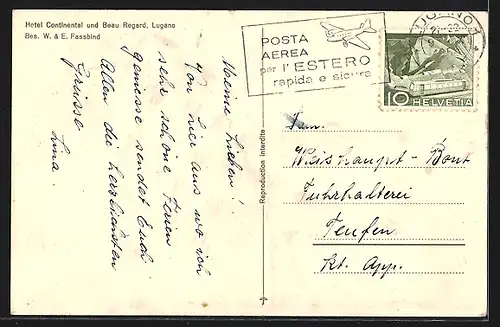 Hotel Continental und Beau Regard, Lugano
Bes. W. & E. Fassbind
Meine Lieben!
Von hier aus wo ich
sehr schöne Ferien
geniesse sendet Euch
Allen die herzlichsten
Grüsse
Lina.
Reproduction interdite
POSTA
AEREA
per l'ESTERO
rapida e sicura
LUGANO 1
10 HELVETIA
Fam.
Weishaupt-Bont
Fuhrhalterei
Teufen
Kt. App.